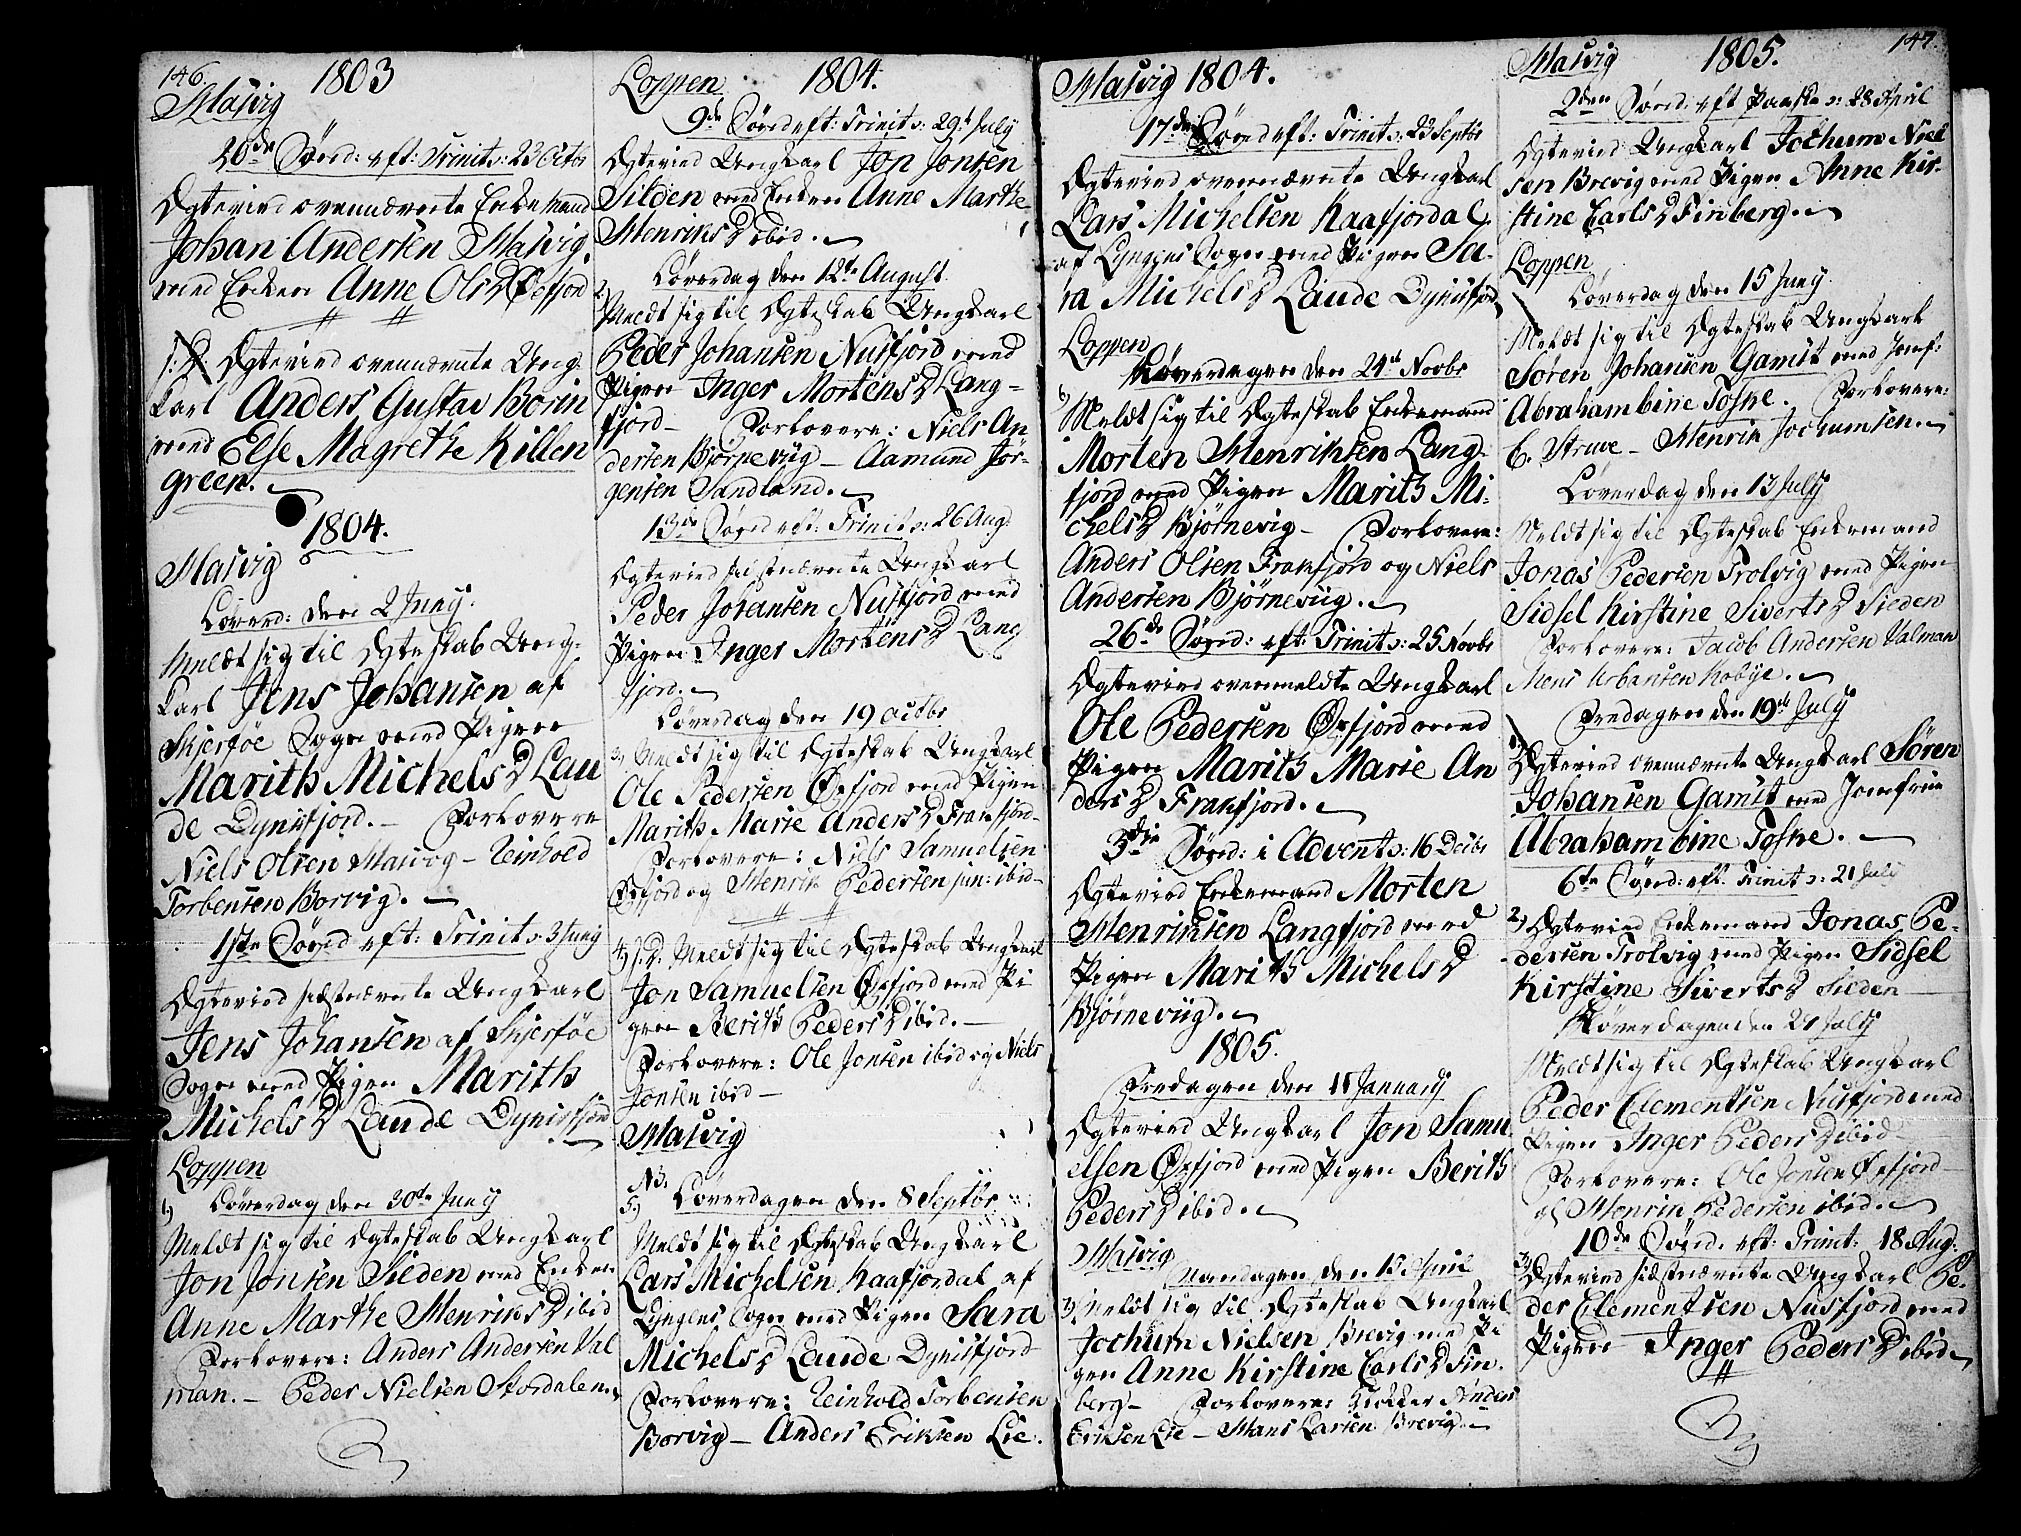 146.
1803
Hasvig
20de Sønd: eft: Trinit: 23 Octbr
Ægteviid ovennævnte Enkemand
Johan Andersen Hasvig,
med Enken Anne OlsD Øxfjord
s: D: Ægteviid ovennævnte Ung-
karl Anders Gustav Borin
med Else Magrethe Killen
green.
1804.
Hasvig
Løverd: den 2 Juny.
Meldt sig til Ægteskab Ung-
karl Jens Johansen af
Skjerføe Sogn med Pigen
Marith MichelsD Lau
de Dynisfjord. - Forlovere
Niels Olsen Hasvog - Reinhold
Torbensen Borvig.
1ste Sønd eft: Trinit: 3 Juny
Ægteviid sidstnævnte Ungkarl
Jens Johansen af Skjerføe
Sogn med Pigen Marith
MichelsD Laude Dynisfjord
Loppen
Løverdag den 30te Juny
1) Meldt sig til Ægteskab Ungkarl
Jon Jonsen Silden med Enken
Anne Marthe HenriksD ibid
Forlovere: Anders Andersen Val
man. - Peder Nielsen Stordalen
Loppen
1804.
9de Sønd eft: Trinit: 29t July
Ægteviid Ungkarl Jon Jonsen
Silden med Enken Anne Marthe
HenriksD ibid.
Løverdag den 12te August
2) Meldt sig til Ægteskab Ungkarl
Peder Johansen Nusfjord med
Pigen Inger MortensD Lang-
fjord - Forlovere: Niels An
dersen Bjørnevüg - Aamund Jør-
gensen Sandland.
13de Sønd eft: Trinit: 26 Aug:
Ægteviid sidstnævnte Ungkarl
Peder Johansen Nusfjord med
Pigen Inger MortensD Lang
fjord.
Løverdag den 19 Octbr
3) Meldt sig til Ægteskab Ungkarl
Ole Pedersen Øxfjord med Pigen
Marith Marie AndersD Frakfjord-
Forlovere: Niels Samuelsen
Øxfjord og Henrik Pedersen jun: ibid-
4) s: D. Meldt sig til Ægteskab Ungkarl
Jon Samuelsen Øxfjord med Pi
gen Berith PedersD ibid. -
Forlovere: Ole Jonsen ibid og Niels
Jonsen ibid -
Hasvig
N3.
5) Løverdagen den 8 Septbr
Meldt sig til Ægteskab Ungkarl
Lars Michelsen Kaafjordal af
Lyngens Sogn med Pigen Sara
MichelsD Laude Dynisfjord
Forlovere: Reinhold Torbensen
Borvig - Anders Eriksen Lie.
Hasvig 1804.
17de Sønd eft: Trinit: 23 Septbr
Ægteviid ovennævnte Ungkarl
Lars Michelsen Kaafjordal
af Lyngens Sogn med Pigen Sa-
ra MichelsD Laude Dynisfjord
Loppen
Løverdagen den 24de Novbr
Meldt sig til Ægteskab Enkemand
Morten Henriksen Lang-
fjord med Pigen Marith Mi-
chelsD Bjørnevig - Forlovere:
Anders Olsen Frakfjord og Niels
Andersen Bjørnevüg.
26de Sønd: eft: Trinit: 25 Novbr
Ægteviid ovenmeldte Ungkarl
Ole Pedersen Øxfjord med
Pigen Marith Marie An
dersD Frakfjord.
3die Sønd: i Advent: 16 Decbr
Ægteviid Enkemand Morten
Henriksen Langfjord med
Pigen Marith MichelsD
Bjørnevüg.
1805.
Fredagen den 11 January
Ægteviid Ungkarl Jon Samu
elsen Øxfjord med Pigen Berith
PedersD ibid.
Hasvig
Mandagen den 15 April
Meldt sig til Ægteskab Ungkarl
Jochum Nielsen Brevig med Pi
gen Anne Kirstine CarlsD Fin-
berg - Forlovere: Klokker Anders
Eriksen Lie - Hans Larsen Brevig.
Hasvig
1805.
147.
2den Sønd: eft Paaske: 28 April
Ægteviid Ungkarl Jochum Niel
sen Brevig med Pigen Anne Kir-
stine CarlsD Finberg.
Loppen
Løverdag den 15 Juny.
Meldt sig til Ægteskab Ungkarl
Søren Johansen Gamst med Jomf:
Abrahambine Toske. Forlovere:
C. Struve - Henrik Jochumsen.
Løverdag den 13 July
Meldt sig til Ægteskab Enkemand
Jonas Pedersen Trolvig med Pigen
Sidsel Kirstine SivertsD Silden
Forlovere: Jacob Andersen Valman
Mons Urbansen Kobye.
Fredagen den 19de July
1) Ægteviid ovennævnte Ungkarl Søren
Johansen Gamst med Jomfrue
Abrahambine Toske.
6te Sønd: eft: Trinit: 21 July
2) Ægteviid Enkemand Jonas Pe-
dersen Trolvig med Pigen Sidsel
Kirstine SivertsD Silden
Løverdagen den 27 July
Meldt sig til Ægteskab Ungkarl
Peder Clementsen Nusfjord med
Pigen Inger PedersD ibid -
Forlovere: Ole Jonsen Øxfjord -
og Henrik Pedersen ibid.
10de Sønd. eft: Trinit: 18 Aug:
3) Ægteviid sidstnævnte Ungkarl Pe-
der Clementsen Nusfjord med
Pigen Inger PedersD ibid